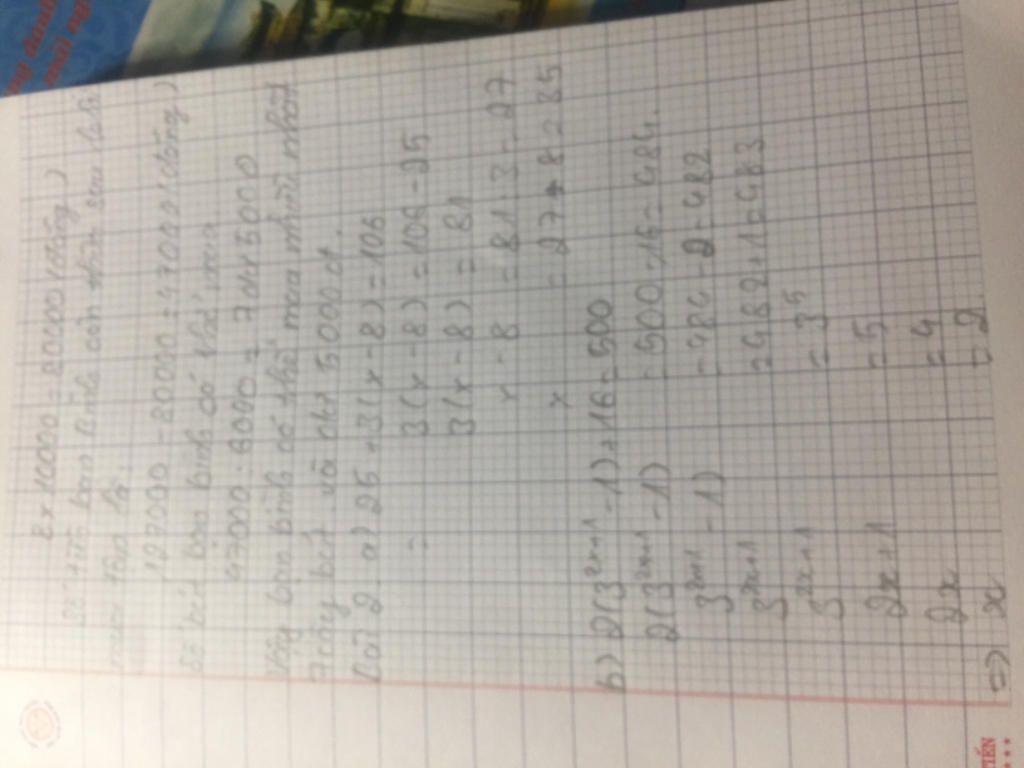 8 x 10000 = 80000 (đồng)
Số tiền bạn Bình còn thừa sau
mua là:
127000 - 80000 = 47000 (đồng)
Số bút bạn bình có thể mua
47000 : 6000 = 7 dư 5000
Vậy bạn bình có thể mua nhiều nhất
7 cây bút và dư 5000 đ.
Bài 2. a) 25 + 3(x - 8) = 106
3(x - 8) = 106 - 25
3(x - 8) = 81
x - 8 = 81 : 3 = 27
x = 27 + 8 = 35
b) 2(3²ˣ⁺¹ - 1) + 16 = 500
2(3²ˣ⁺¹ - 1) = 500 - 16 = 484.
3²ˣ⁺¹ - 1) = 484 : 2 = 482
3²ˣ⁺¹ = 482 + 1 = 483
3²ˣ⁺¹ = 3⁵
2x + 1 = 5
2x = 4
=> x = 2
TIẾN